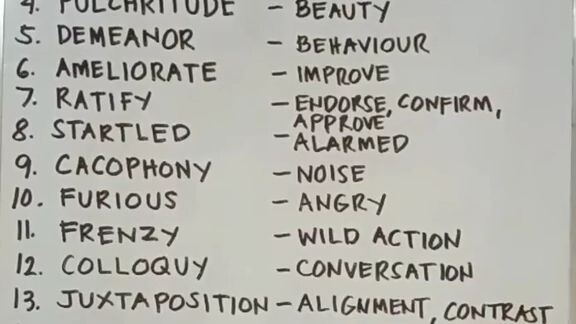 4. PULCHRITUDE - BEAUTY
5. DEMEANOR - BEHAVIOUR
6. AMELIORATE - IMPROVE
7. RATIFY - ENDORSE, CONFIRM,
APPROVE
8. STARTLED - ALARMED
9. CACOPHONY - NOISE
10. FURIOUS - ANGRY
11. FRENZY - WILD ACTION
12. COLLOQUY - CONVERSATION
13. JUXTAPOSITION - ALIGNMENT, CONTRAST